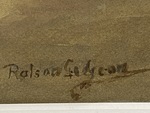 Ralson Gudgeon